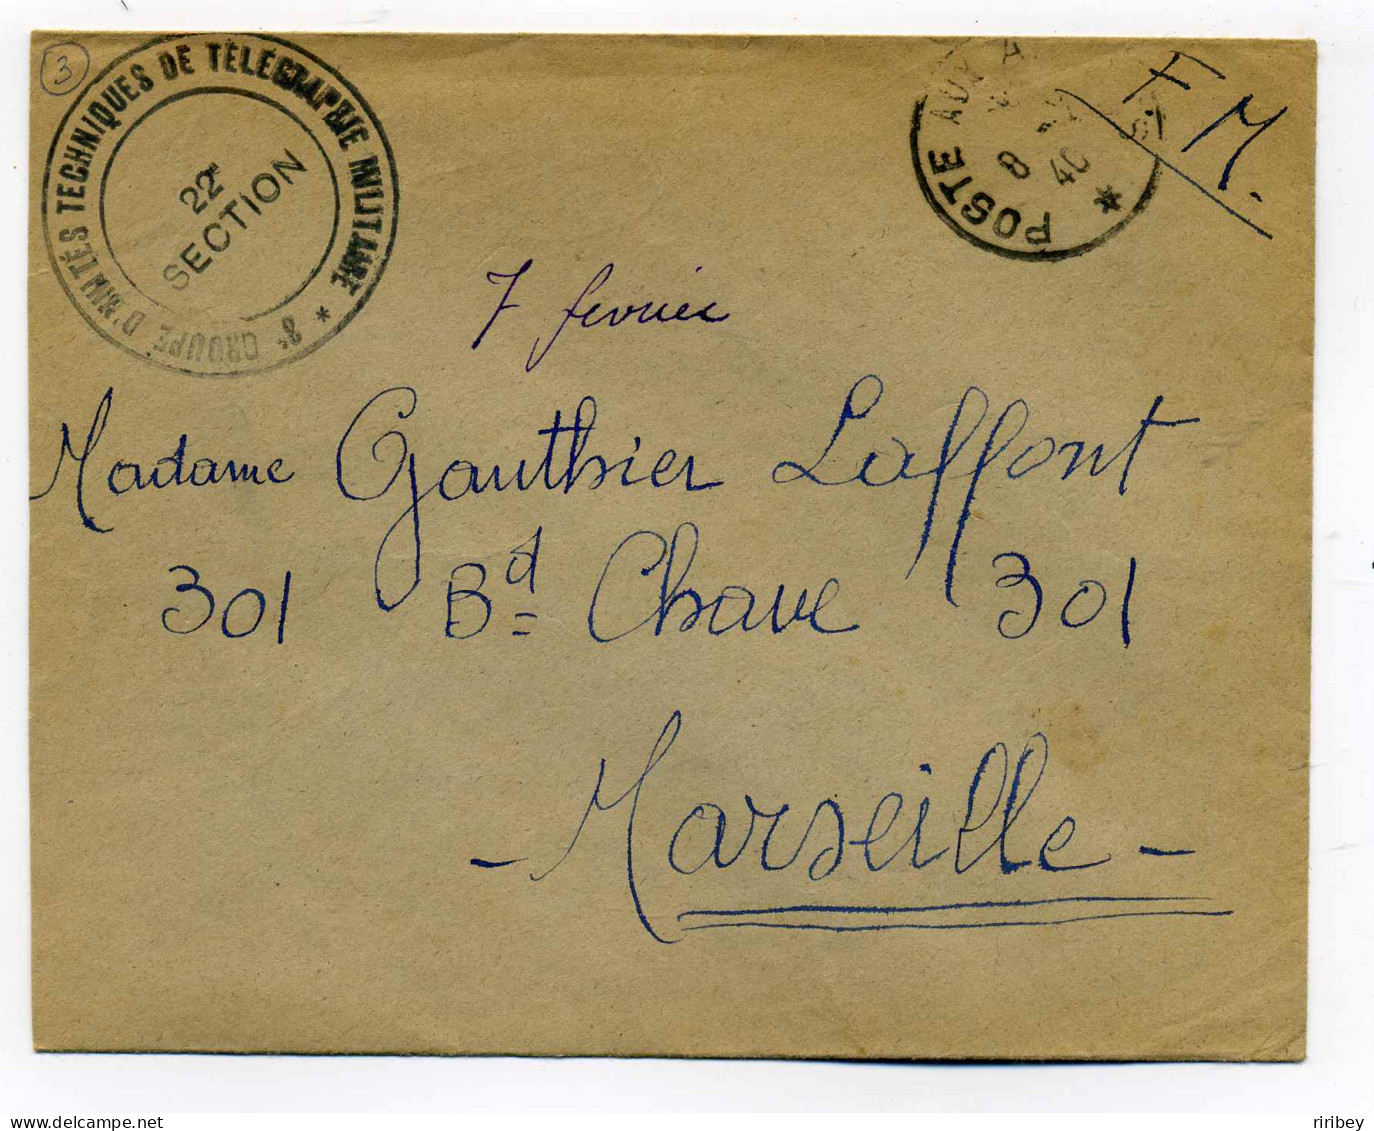 3
3e GROUPE D'UNITÉS TECHNIQUES DE TÉLÉGRAPHIE MILITAIRE *
22e
SECTION
POSTE AUX A
8
40
*
F.M.
7 fevrier
Madame Gauthier Laffont
301 Bd Chave 301
- Marseille -
riribey